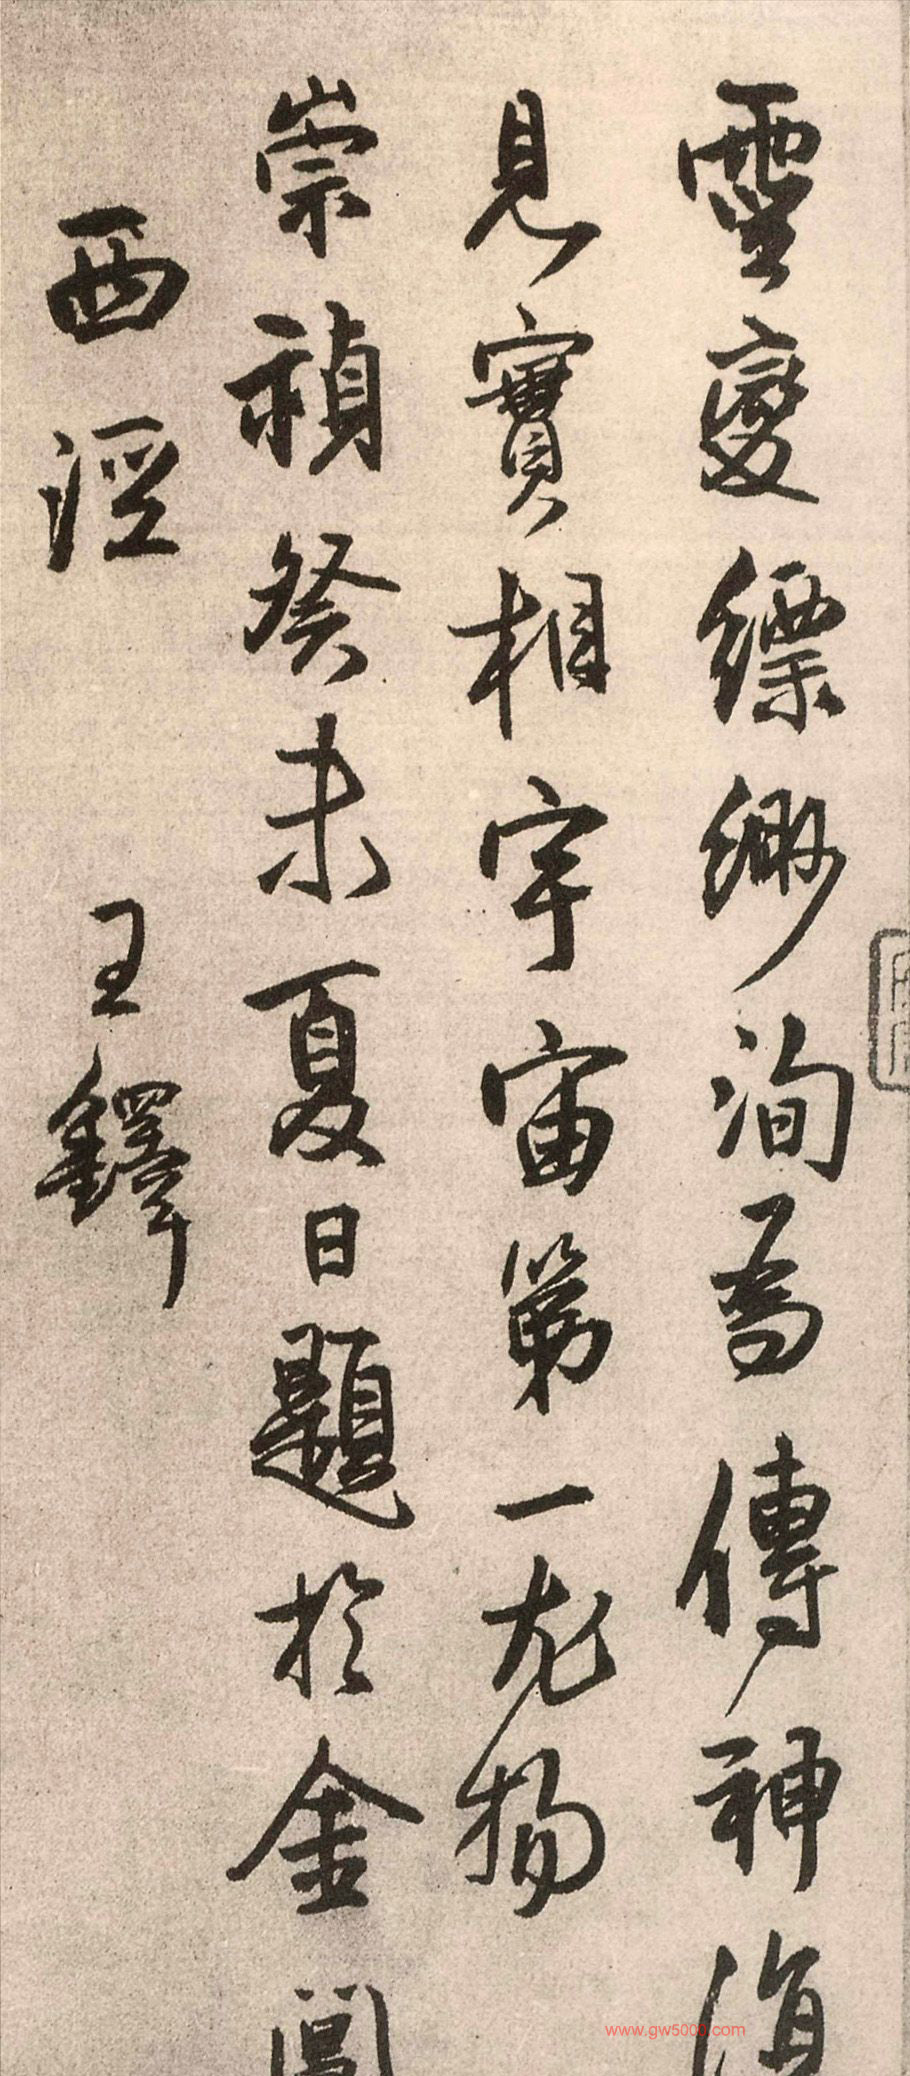 靈變縹緲洵為傳神須
見寶相宇宙第一尤物
崇禎癸未夏日題於金閶
西涇 王鐸
www.gw5000.com